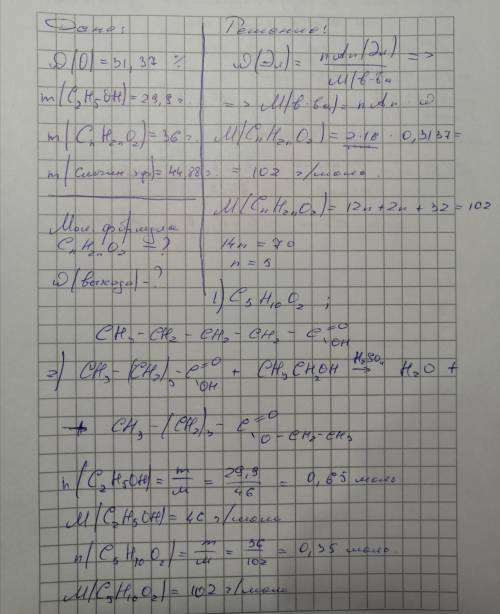 Дано:
ω(O) = 31,37 %
m(C2H5OH) = 29,9 г.
m(CnH2nO2) = 36 г
m(сложн. эф) = 44,88 г.
Мол. формула
CnH2nO2 = ?
ω(выхода) - ?
Решение:
ω(Эл) = nAr(Эл) / M(в-ва) =>
=> M(в-ва) = nAr · ω
M(CnH2nO2) = 2·16 · 0,3137 =
= 102 г/моль.
M(CnH2nO2) = 12n + 2n + 32 = 102
14n = 70
n = 5
1) C5H10O2 ;
CH3 - CH2 - CH2 - CH2 - C =O OH
2) CH3 - (CH2)3 - C =O OH + CH3CH2OH H2SO4 → H2O +
+ CH3 - (CH2)3 - C =O O - CH2 - CH3
n(C2H5OH) = m/M = 29,9/46 = 0,65 моль
M(C2H5OH) = 46 г/моль
n(C5H10O2) = m/M = 36/102 = 0,35 моль.
M(C5H10O2) = 102 г/моль